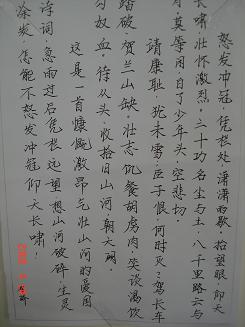 怒发冲冠,凭栏处 潇潇雨歇,抬望眼,仰天
长啸,壮怀激烈。三十功名尘与土,八千里路云与
月,莫等闲,白了少年头,空悲切
靖康耻,犹未雪,臣子恨,何时灭?驾长车
踏破 贺兰山缺。壮志饥餐胡虏肉,笑谈渴饮
匈奴血,待从头,收拾旧山河,朝天阙。
这是一首慷慨激昂气壮山河的爱国
诗词,急雨过后凭栏远望想山河破碎,生灵
涂炭,怎能不怒发冲冠 仰天长啸!